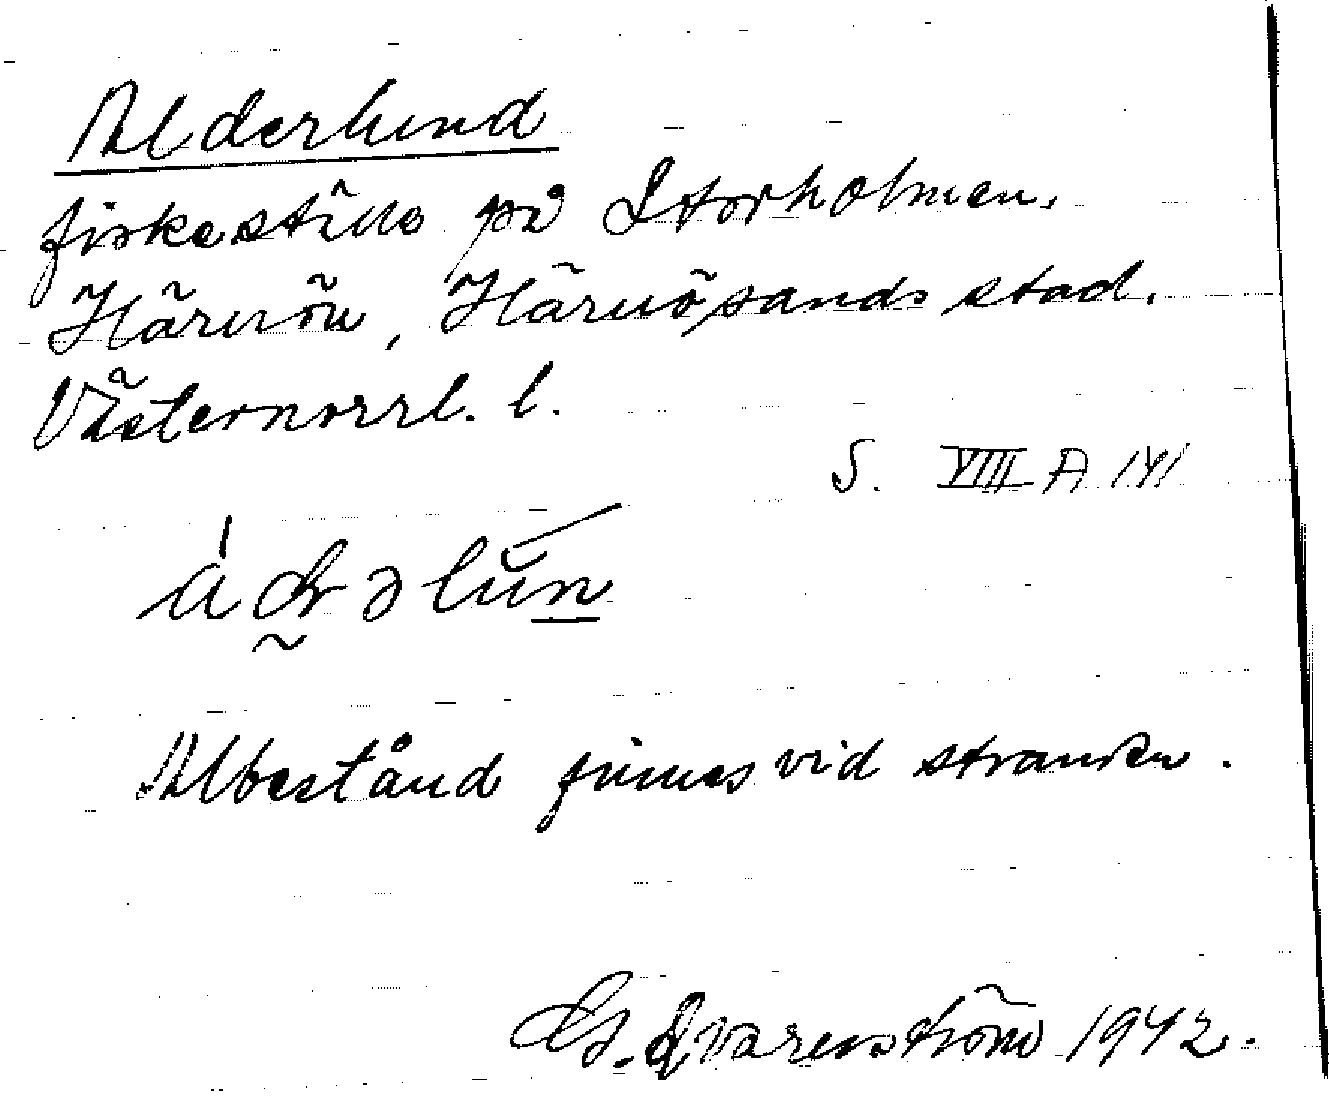 Alderlund
fiskeställe på Storholmen,
Härnön, Härnösands stad.
Västernorrl. l.
S. VIII A 141
Albestånd finnes vid stranden.
G. Qvarnström 1942.